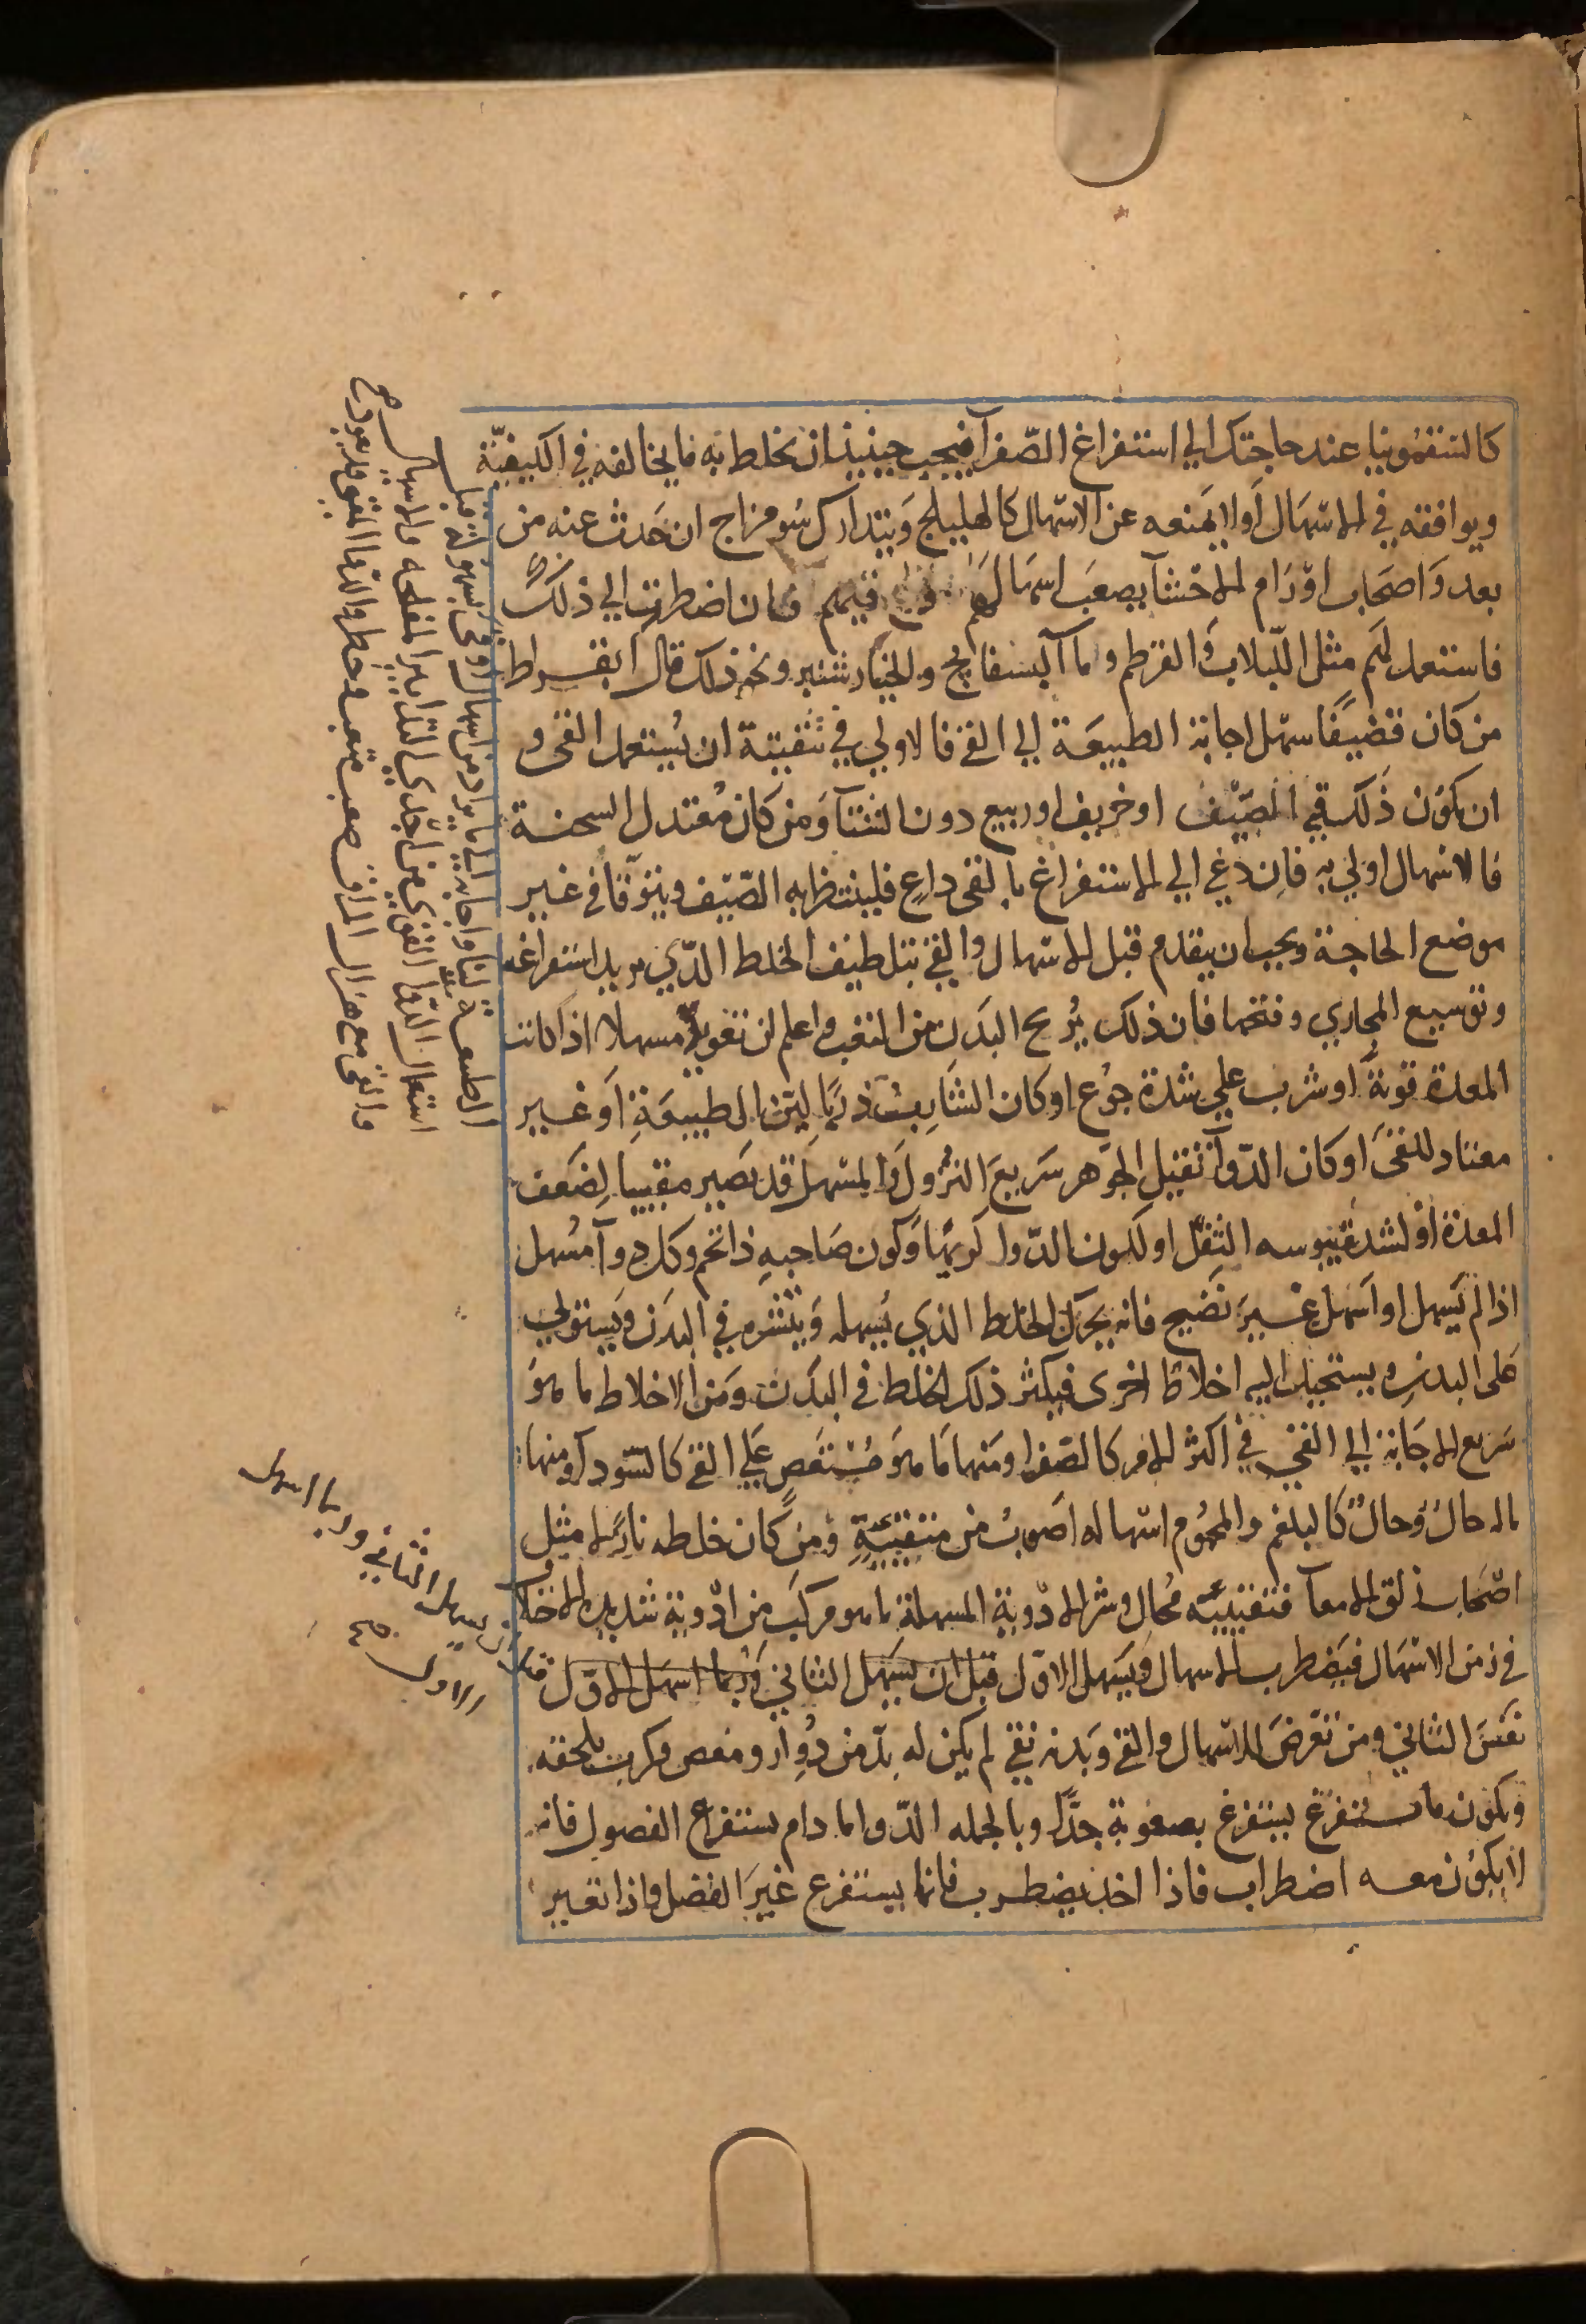 كالسقمونيا عند حاجتك الي استفراغ الصفرآ فيجب حينيذ ان نخلط به مايخالفه في الكيفيّة
ويوافقه في الاسهال او لا يمنعه عن الاسهال كالهليلج ويتدارك سو مزاج ان حدث عنه من
بعد واصحاب اورام الاحشآ يصعب اسهالهم وقيهم فان اضطررت الي ذلك
فاستعمل لهم مثل اللبلاب والقرطم وماآ البسفايج والخيارشنبر ونحو ذلك قال ابقراط
من كان قضيفًا سهل اجابة الطبيعة الي القي فالاولي في تنقيتة ان يستعمل القي و
ان يكون ذلك في الصيف او خريف او ربيع دون الشتآ ومن كان معتدل السحنة
فالاسهال اولي به فان دعي الي الاستفراغ بالقي داعٍ فلينتظر به الصيف ويتوقا في غير
موضع الحاجة ويجب ان يقدم قبل الاسهال والقي بتلطيف الخلط الذي يريد استفراغه
وتوسيع المجاري وفتحها فان ذلك يريح البدن من التعب واعلم ان مسهلا اذا كانت
المعدة قوية او شرب علي شدة جوع او كان الشارب ذربا لين الطبيعة او غير
معتاد للقي او كان الدوآ ثقيل الجوهر سريع النزول والمسهل قد يصير مقييا لضعف
المعدة او لشدة يبوسه الثفل او لكون الدوا كريها وكون صاحبه ذا تخم وكل دوآ مسهل
اذا لم يسهل او اسهل غير نضيج فانه يحرك الخلط الذي يسهله وينشره في البدن ويستولي
علي البدن ويستحيل اليه اخلاط اخرى فيكثر ذلك الخلط في البدن ومن الاخلاط ما هو
سريع الاجابة الي القي في اكثر الامر كالصفرا ومنها ما هو مستعص علي القي كالسودآ ومنها
ماله حال وحال كالبلغم والمحموم اسهاله اصوب من تقييئه ومن كان خلطه نازلا مثل
اصحاب زلق الامعآ فتقييئه محال وشر الادوية المسهلة ما هو مركب من ادوية شديدة الاختلاف
في زمن الاسهال فيضطرب الاسهال ويسهل الاول قبل ان يسهل الثاني وربما اسهل الاول
نفس الثاني ومن تعرض للاسهال والقي وبدنه نقي لم يكن له بد من دوار ومغص وكرب يلحقه
ويكون ما يستفرغ يستفرغ بصعوبة جدًا وبالجمله الدوا ما دام يستفرغ الفضول فانه
لا يكون معه اضطراب فاذا اخذ يضطرب فانما يستفرغ غير الفضل واذا تغير
قبل ان يسهل الثاني وربما اسهل
الاول صح